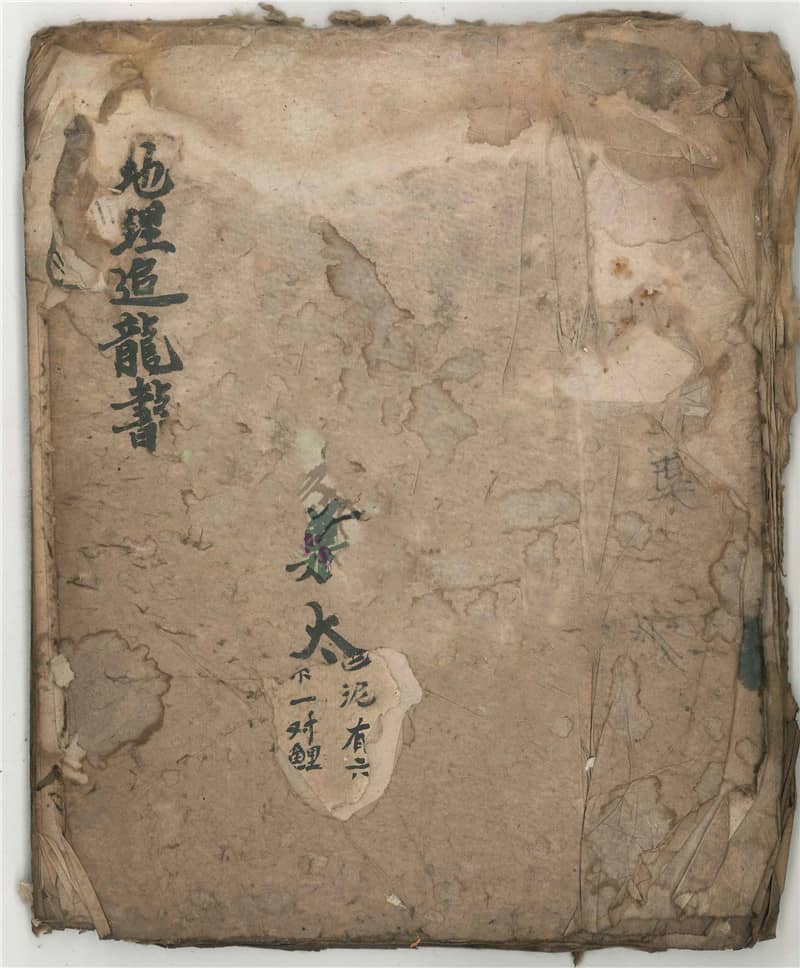 地理追龍書
太
泥有六
下一对鲤